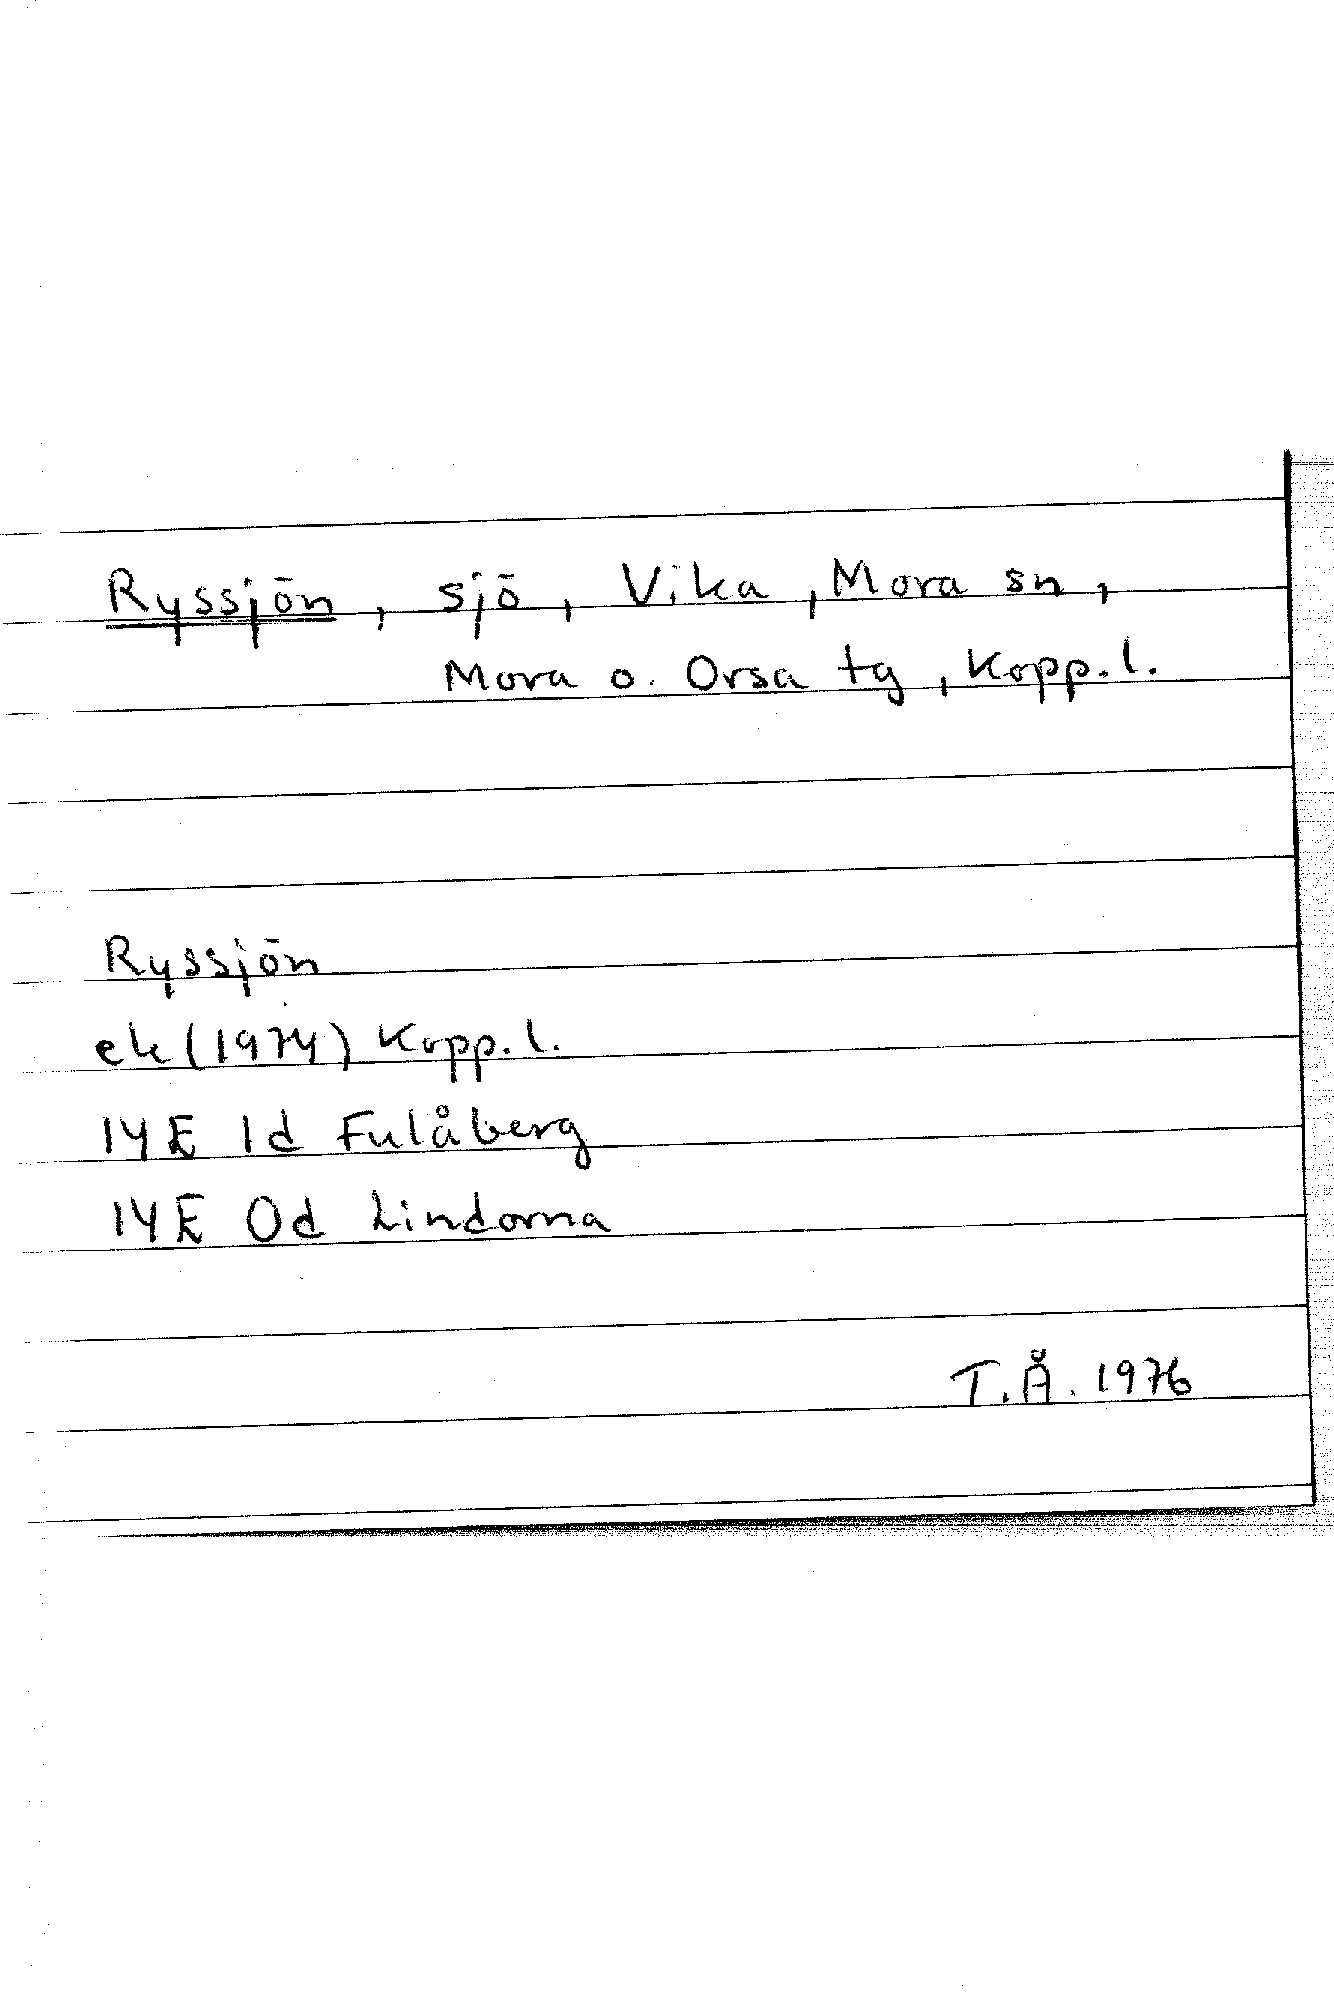 Ryssjön, sjö, Vika, Mora sn,
Mora o. Orsa tg, Kopp.l.
Ryssjön
ek (1974) Kopp.l.
14E 1d Fulåberg
14E 0d Lindorna
T.Å. 1976